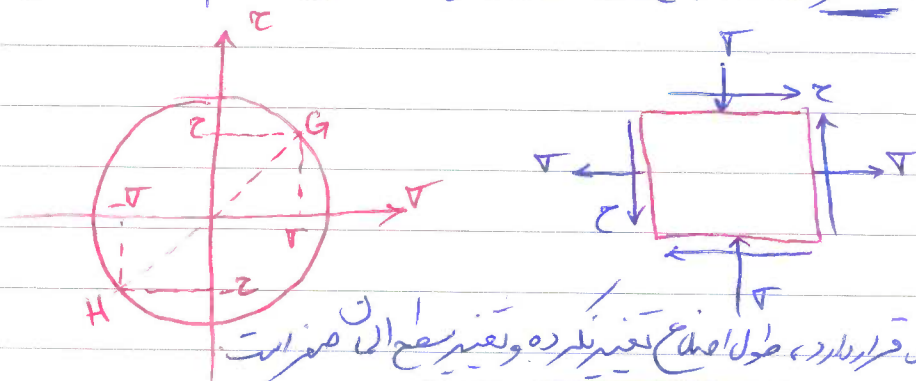 τ
τ G
σ
-σ
σ
H
-τ
σ
τ
σ
σ
τ
σ
قرار دارد، طول اضلاع تغییر نکرده و تغییر سطح المان صفر است